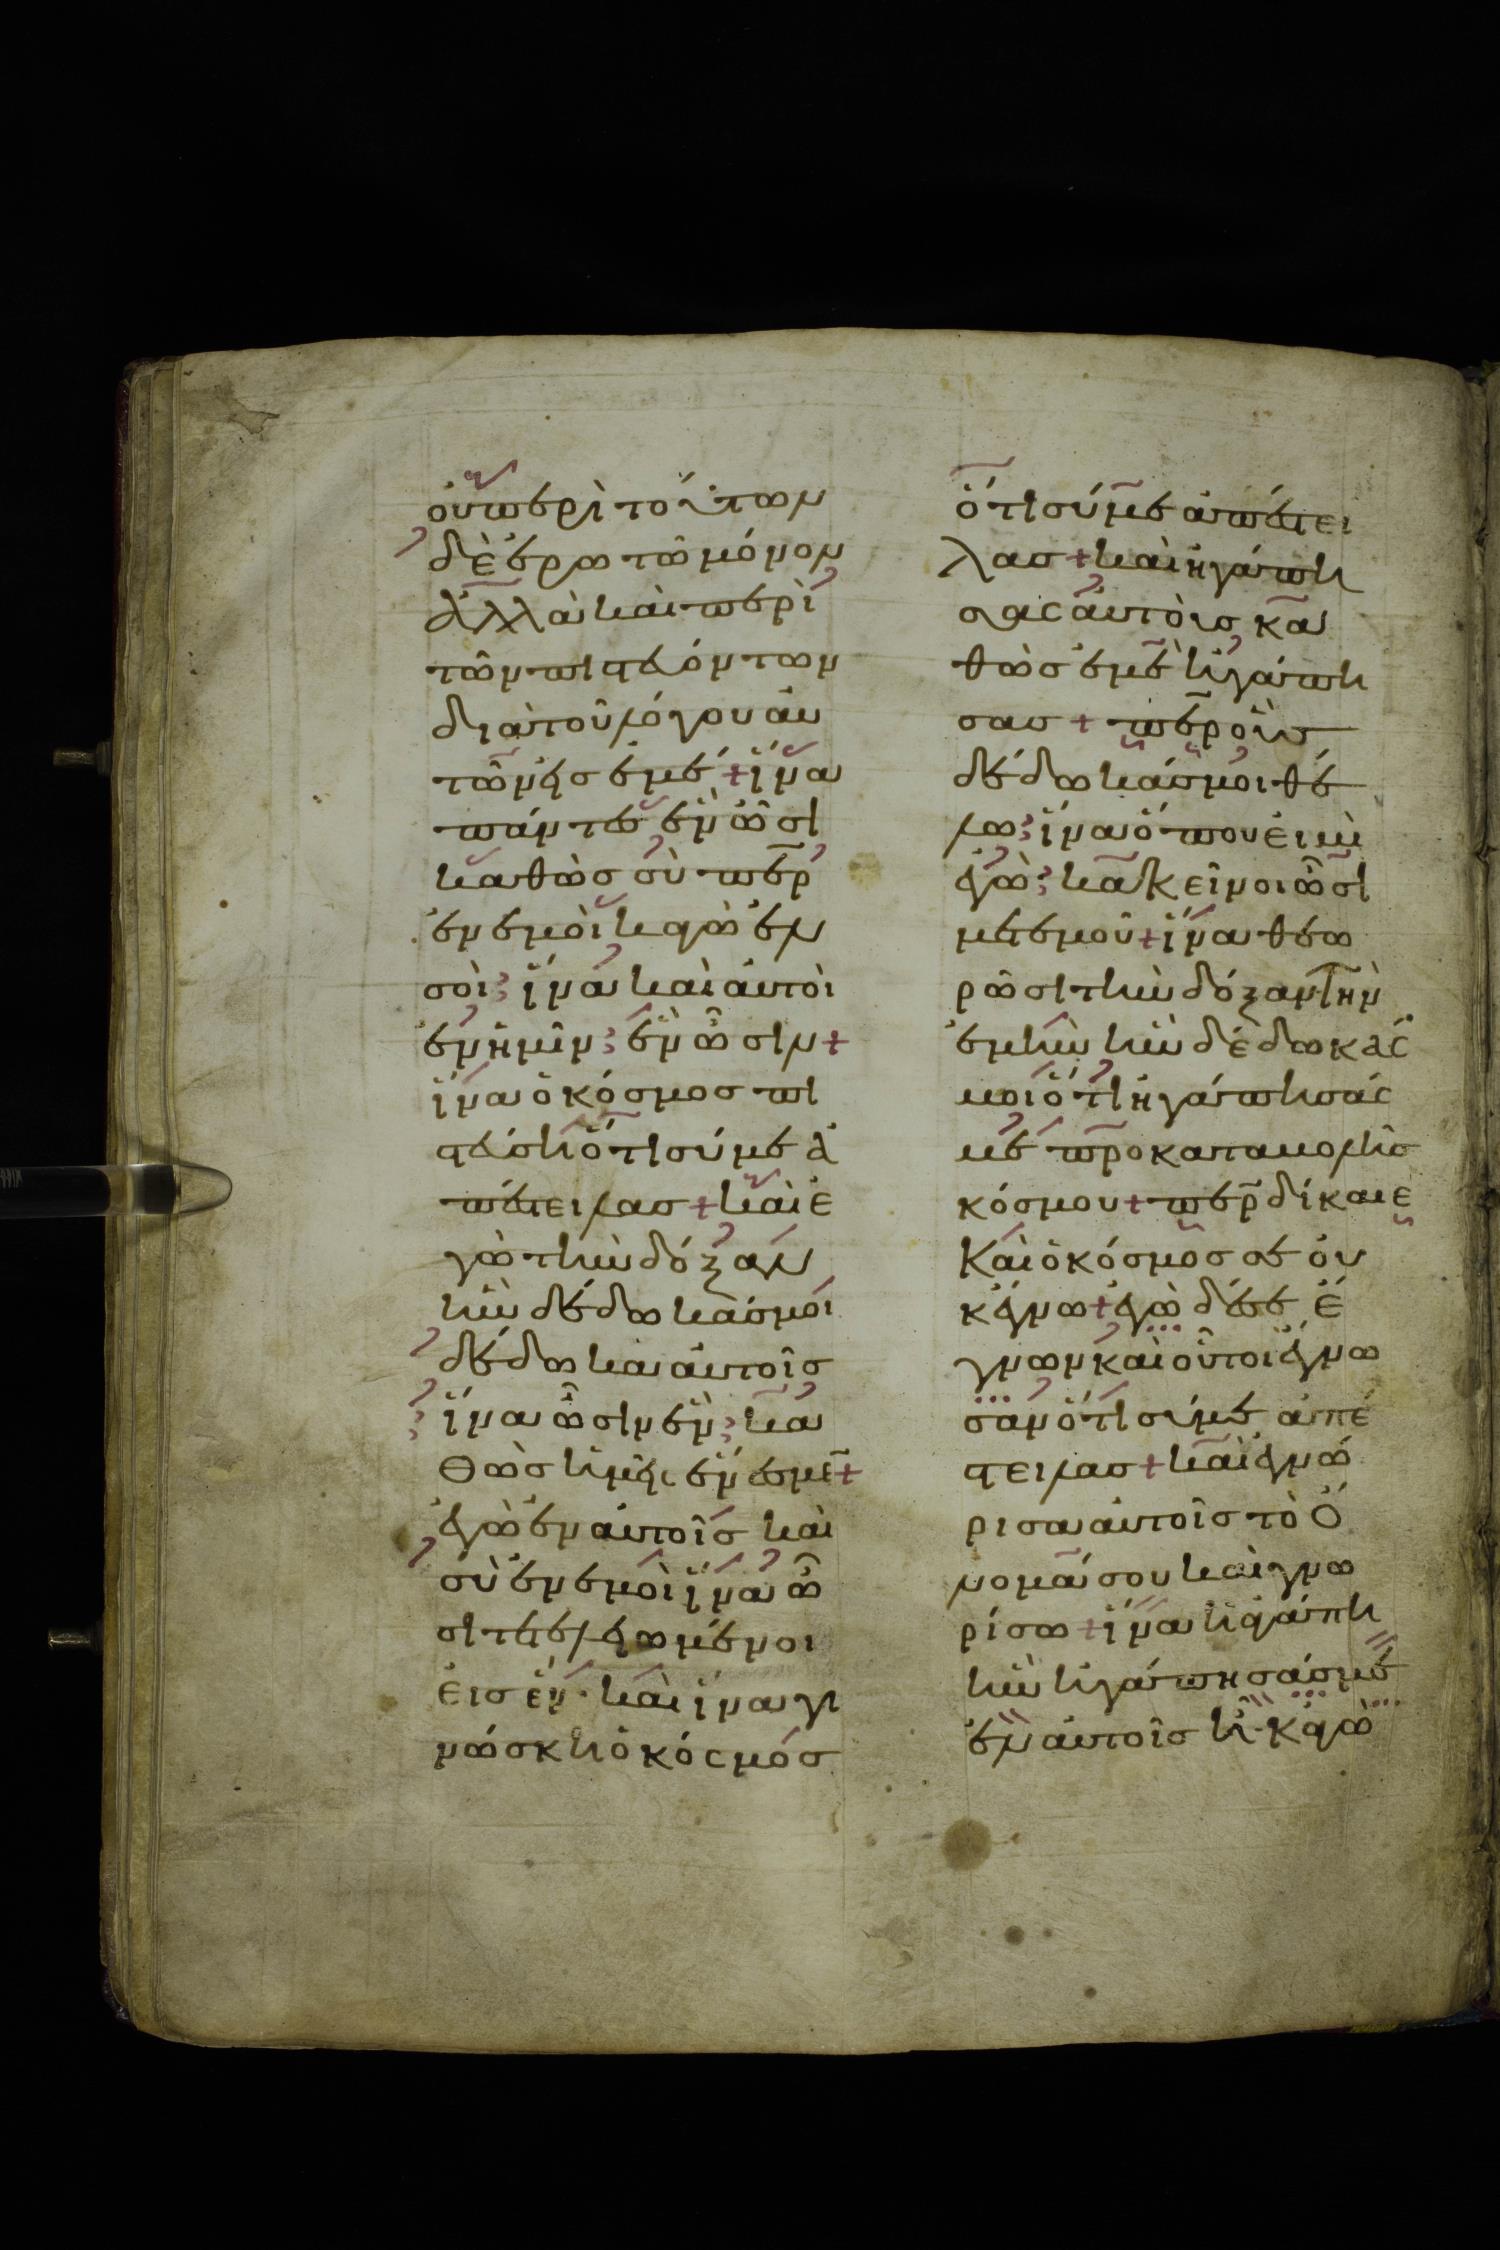 οὐ περὶ τούτων
δὲ ἐρωτῶ μόνον
ἀλλὰ καὶ περὶ
τῶν πιστευόντων
διὰ τοῦ λόγου αὐ
τῶν εἰς ἐμέ + ἵνα
πάντες ἓν ὦσι
καθὼς σὺ περ
ἐν ἐμοὶ κἀγὼ ἐν
σοὶ ἵνα καὶ αὐτοὶ
ἐν ἡμῖν ἓν ὦσιν +
ἵνα ὁ κόσμος πι
στεύσῃ ὅτι σύ με ἀ
πέστειλας + καὶ ἐ
γὼ τὴν δόξαν
ἣν δέδωκάς μοι
δέδωκα αὐτοῖς
ἵνα ὦσιν ἓν κα
θὼς ἡμεῖς ἕν ἐσμεν +
ἐγὼ ἐν αὐτοῖς καὶ
σὺ ἐν ἐμοὶ ἵνα ὦ
σι τετελειωμένοι
εἰς ἕν · καὶ ἵνα γι
νώσκῃ ὁ κόσμος
ὅτι σύ με ἀπέστει
λας + καὶ ἠγάπη
σας αὐτοὺς κα
θὼς ἐμὲ ἠγάπη
σας + περ οὓς
δέδωκάς μοι θέ
λω ἵνα ὅπου εἰμὶ
ἐγὼ κἀκεῖνοι ὦσι
μετ ἐμοῦ + ἵνα θεω
ρῶσι τὴν δόξαν τὴν
ἐμὴν ἣν δέδωκάς
μοι ὅτι ἠγάπησάς
με προ καταβολῆς
κόσμου + περ δίκαιε
καὶ ὁ κόσμος σε οὐ
κ ἔγνω + ἐγὼ δέ σε ἔ
γνων καὶ οὗτοι ἔγνω
σαν ὅτι σύ με ἀπέ
στειλας + καὶ ἐγνώ
ρισα αὐτοῖς τὸ ὄ
νομά σου καὶ γνω
ρίσω + ἵνα ἡ ἀγάπη
ἣν ἠγάπησάς με
ἐν αὐτοῖς ᾖ · κἀγὼ